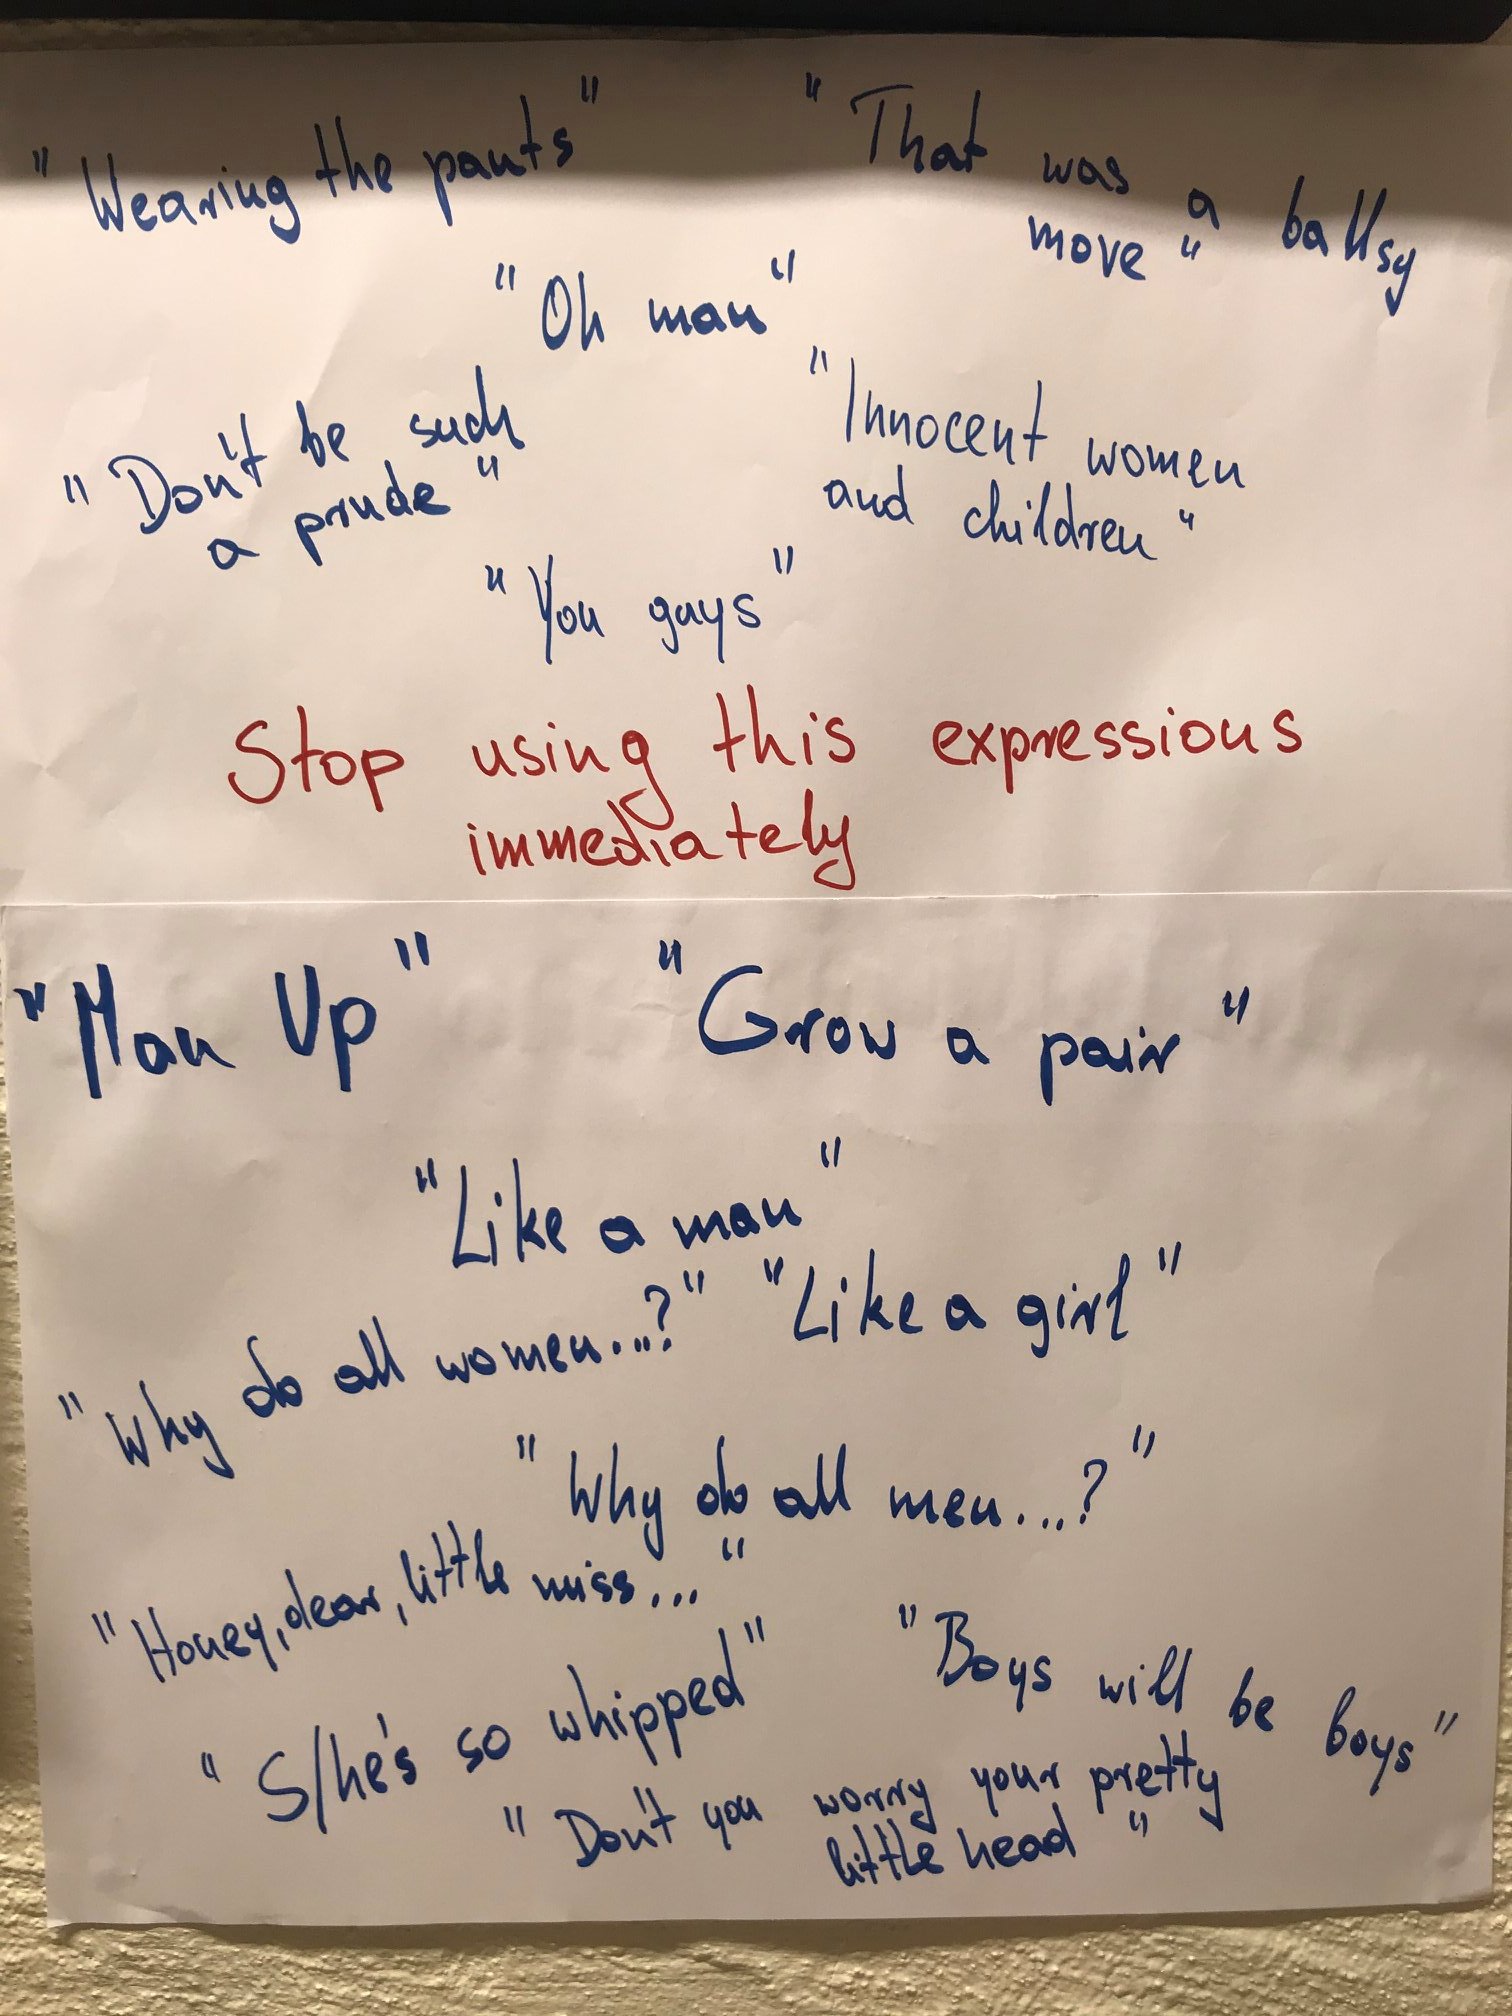 "Wearing the pants"
"That was a ballsy
move"
"Oh man"
"Don't be such
a prude"
"Innocent women
and children"
"You guys"
Stop using this expressions
immediately
"Man Up"
"Grow a pair"
"Like a man"
"Why do all women...?"
"Like a girl"
"Why do all men...?"
"Honey, dear, little miss..."
"S/he's so whipped"
"Boys will be boys"
"Don't you worry your pretty
little head"